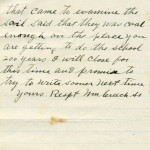 that came to examine the
land said that they was coal
enough on the place you
are getting to do the school
200 years I will close for
this time and promise to
try to write sooner next time
Yours Respt Wm